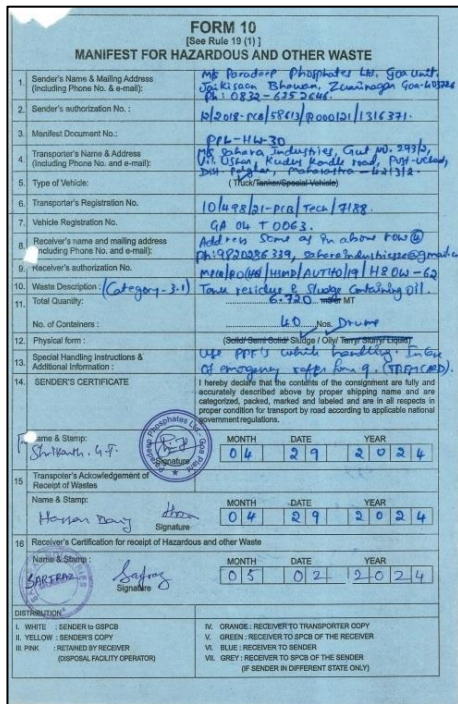 FORM 10
[See Rule 19 (1) ]
MANIFEST FOR HAZARDOUS AND OTHER WASTE
1. Sender's Name & Mailing Address (Including Phone No. & e-mail): M/s Paradeep Phosphates Ltd. Goa unit.
Jaikisaan Bhawan, Zuarinagar Goa-403726
Ph: 0832-
2. Sender's authorization No. : 12/2018-PCB/58613/R000121/1316371.
3. Manifest Document No.: PPL-HW-30
4. Transporter's Name & Address (Including Phone No. and e-mail): M/s Sahara Industries, Gut No. 293/2,
Vill. Ushar, Kudus Kondle road, Post-
Dist- Palghar, Maharastra - 421312.
5. Type of Vehicle: (Truck/Tanker/Special Vehicle)
6. Transporter's Registration No. 10/498/21-PCB/Tech/7188.
7. Vehicle Registration No. GA 04 T 0063.
8. Receiver's name and mailing address (Including Phone No. and e-mail): Address Same as in above row 4
Ph: 9820286339,
9. Receiver's authorization No.
10. Waste Description : (Category-3.1) Tank residue & Sludge Containing oil.
11. Total Quantity: 6.720 MT
No. of Containers : 40 Nos. Drums
12. Physical form : (Solid/ Semi Solid/ Sludge / Oily/ Tarry/ Slurry/ Liquid)
13. Special Handling Instructions & Additional Information : Use PPE's while handling. In Case
Of emergency refer form 9. (TREMCARD).
14. SENDER'S CERTIFICATE
I hereby declare that the contents of the consignment are fully and
accurately described above by proper shipping name and are
categorized, packed, marked and labeled and are in all respects in
proper condition for transport by road according to applicable national
government regulations.
Name & Stamp: Signature
Shrikanth. G.F.
Paradeep Phosphates Ltd. Goa Plant
MONTH DATE YEAR
04 29 2024
15 Transpoter's Acknowledgement of Receipt of Wastes
Name & Stamp:
Hassan Signature
MONTH DATE YEAR
04 29 2024
16 Receiver's Certification for receipt of Hazardous and other Waste
Name & Stamp :
SARFRAZ Sarfraz
Signature
MONTH DATE YEAR
05 02 2024
DISTRIBUTION
I. WHITE : SENDER to GSPCB
II. YELLOW : SENDER'S COPY
III. PINK : RETAINED BY RECEIVER
(DISPOSAL FACILITY OPERATOR)
IV. ORANGE : RECEIVER TO TRANSPORTER COPY
V. GREEN : RECEIVER TO SPCB OF THE RECEIVER
VI. BLUE : RECEIVER TO SENDER
VII. GREY : RECEIVER TO SPCB OF THE SENDER
(IF SENDER IN DIFFERENT STATE ONLY)